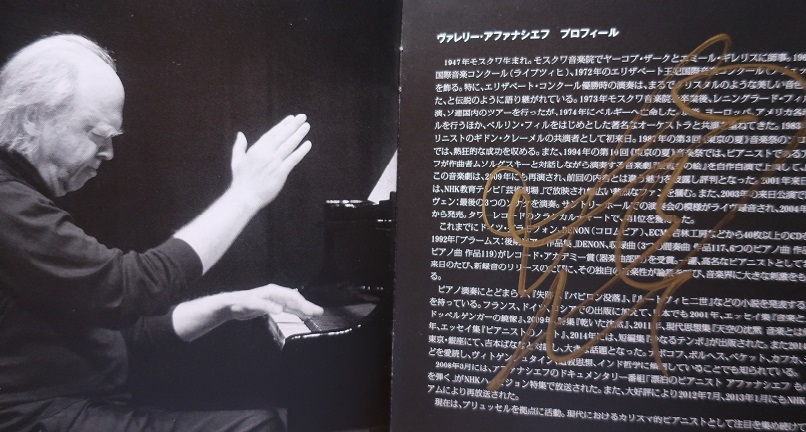 ヴァレリー・アファナシエフ プロフィール
1947年モスクワ生まれ。モスクワ音楽院でヤーコプ・ザークとエミール・ギレリスに師事。196
国際音楽コンクール(ライプツィヒ)、1972年のエリザベート王妃国際音楽コンクール
を飾る。特に、エリザベート・コンクール優勝時の演奏は、まるでクリスタルのような美しい音色
た、と伝説のように語り継がれている。1973年モスクワ音楽院を卒業後、レニングラード・フィ
演、ソ連国内のツアーを行ったが、1974年にベルギーへ亡命した。ヨーロッパ、アメリカ各
ルを行うほか、ベルリン・フィルをはじめとした著名なオーケストラと共演を重ねてきた。1983
リニストのギドン・クレーメルの共演者として初来日。1987年の第3回《東京の夏》音楽祭
では、熱狂的な成功を収める。また、1994年の第10回《東京の夏》音楽祭では、ピアニストである
フが作曲者ムソルグスキーと対話しながら演奏する音楽劇『展覧会の絵』を自作自演で上演して
この音楽劇は、2009年にも再演され、前回の内容とは違う魅力を披露し評判となった。2001年来日
は、NHK教育テレビ「芸術劇場」で放映され ファンを掴む。また、2003年の来日公演で
ヴェン:最後の3つのソナタを演奏。サントリーホールでの演奏会の模様がライヴ録音され、2004年
から発売。タワーレコードのクラシカルチャートで、1位を飾った。
これまでにドイツ・グラモフォン、DENON(コロムビア)、ECM、若林工房などから40枚以上のCD
1992年「ブラームス:後期ピアノ作品集」DENON、収録曲(3つの間奏曲 作品117、6つのピアノ曲 作品
ピアノ曲 作品119)がレコード・アカデミー賞(器楽曲部門)を受賞。 高名なピアニストとして
来日のたび、新録音のリリースのたびに、その独自の音楽性が論議をよび、音楽界に大きな刺激を
る。
ピアノ演奏にとどまらず、『失踪』、『バビロン没落』、『ルートヴィヒ二世』などの小説を発表す
を持っている。フランス、ドイツ、ロシアでの出版に加えて、日本でも2001年、エッセイ集『音楽と
ドッペルゲンガーの鏡像』、2009年 『乾いた沈黙』、2011年、現代思想集『天空の沈黙 音楽とは
年、エッセイ集『ピアニストのノート』、2014年には、短編集『妙なるテンポ』が出版された。また2014
東京・銀座にて、吉本ばななと対談し、大きな話題となった。ナボコフ、ボルヘス、ベケット、カフカ、
どを愛読し、ヴィトゲンシュタイン、仏教思想、インド哲学に していることでも知られている。
2008年8月には、アファナシエフのドキュメンタリー番組「漂泊のピアニスト アファナシエフ も
を弾く」がNHKハイビジョン特集で放送された。また、大好評により2012年7月、2013年1月にもNHK
アムにより再放送された。
現在は、ブリュッセルを拠点に活動。現代におけるカリスマ的ピアニストとして注目を集め続けて